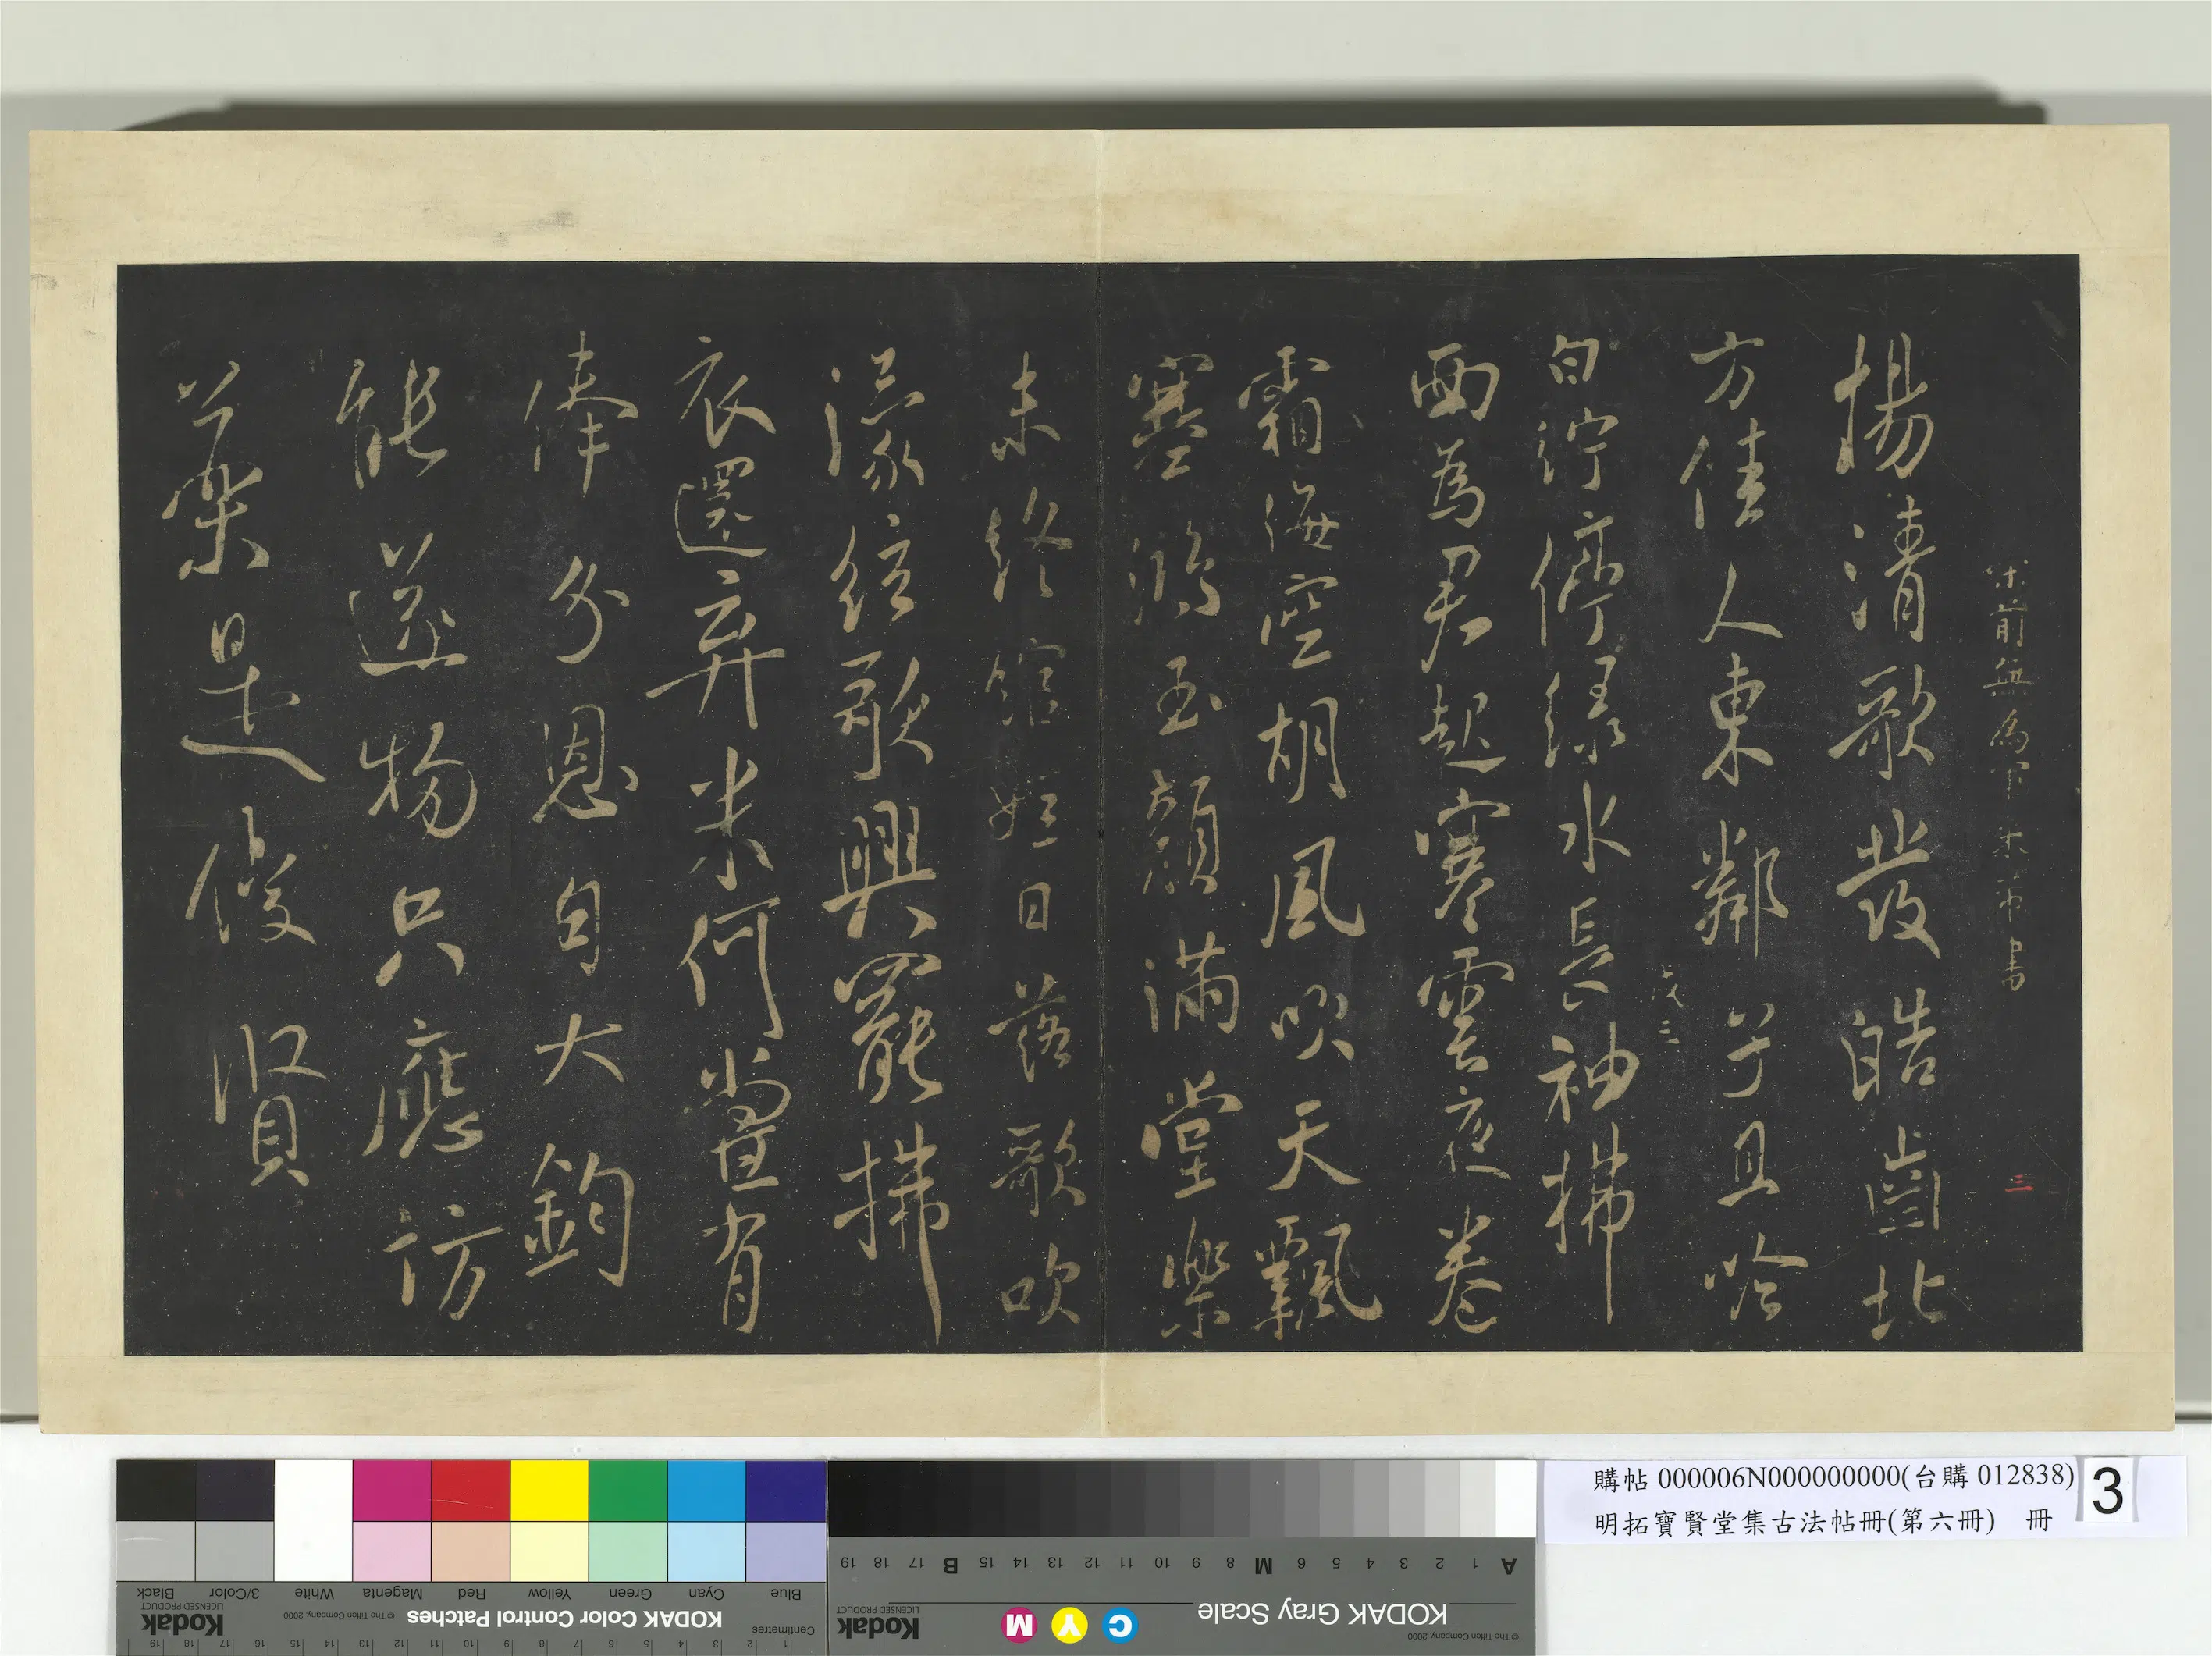 前無為軍米芾書
三
揚清歌發皓齒北
方佳人東鄰子且吟
三
白紵停綠水長袖拂
面為君起寒雲夜卷
霜海空胡風吹天飄
塞鴻玉顏滿堂樂
未終館娃日落歌吹
濛絃歌興罷拂
衣還弃米何嘗肯
俸分恩自大鈞
能遂物只應訪
藥是優賢
購帖 000006N000000000(台購 012838)
明拓寶賢堂集古法帖冊(第六冊) 冊
3
Blue Cyan Green Yellow Red Magenta White 3/Color Black
KODAK Color Control Patches
© The Tiffen Company, 2000
Kodak
LICENSED PRODUCT
Centimetres
1 2 3 4 5 6 7 8 9 10 11 12 13 14 15 16 17 18 19
A 1 2 3 4 5 6 M 8 9 10 11 12 13 14 15 B 17 18 19
KODAK Gray Scale
C Y M
Kodak
LICENSED PRODUCT
© The Tiffen Company, 2000